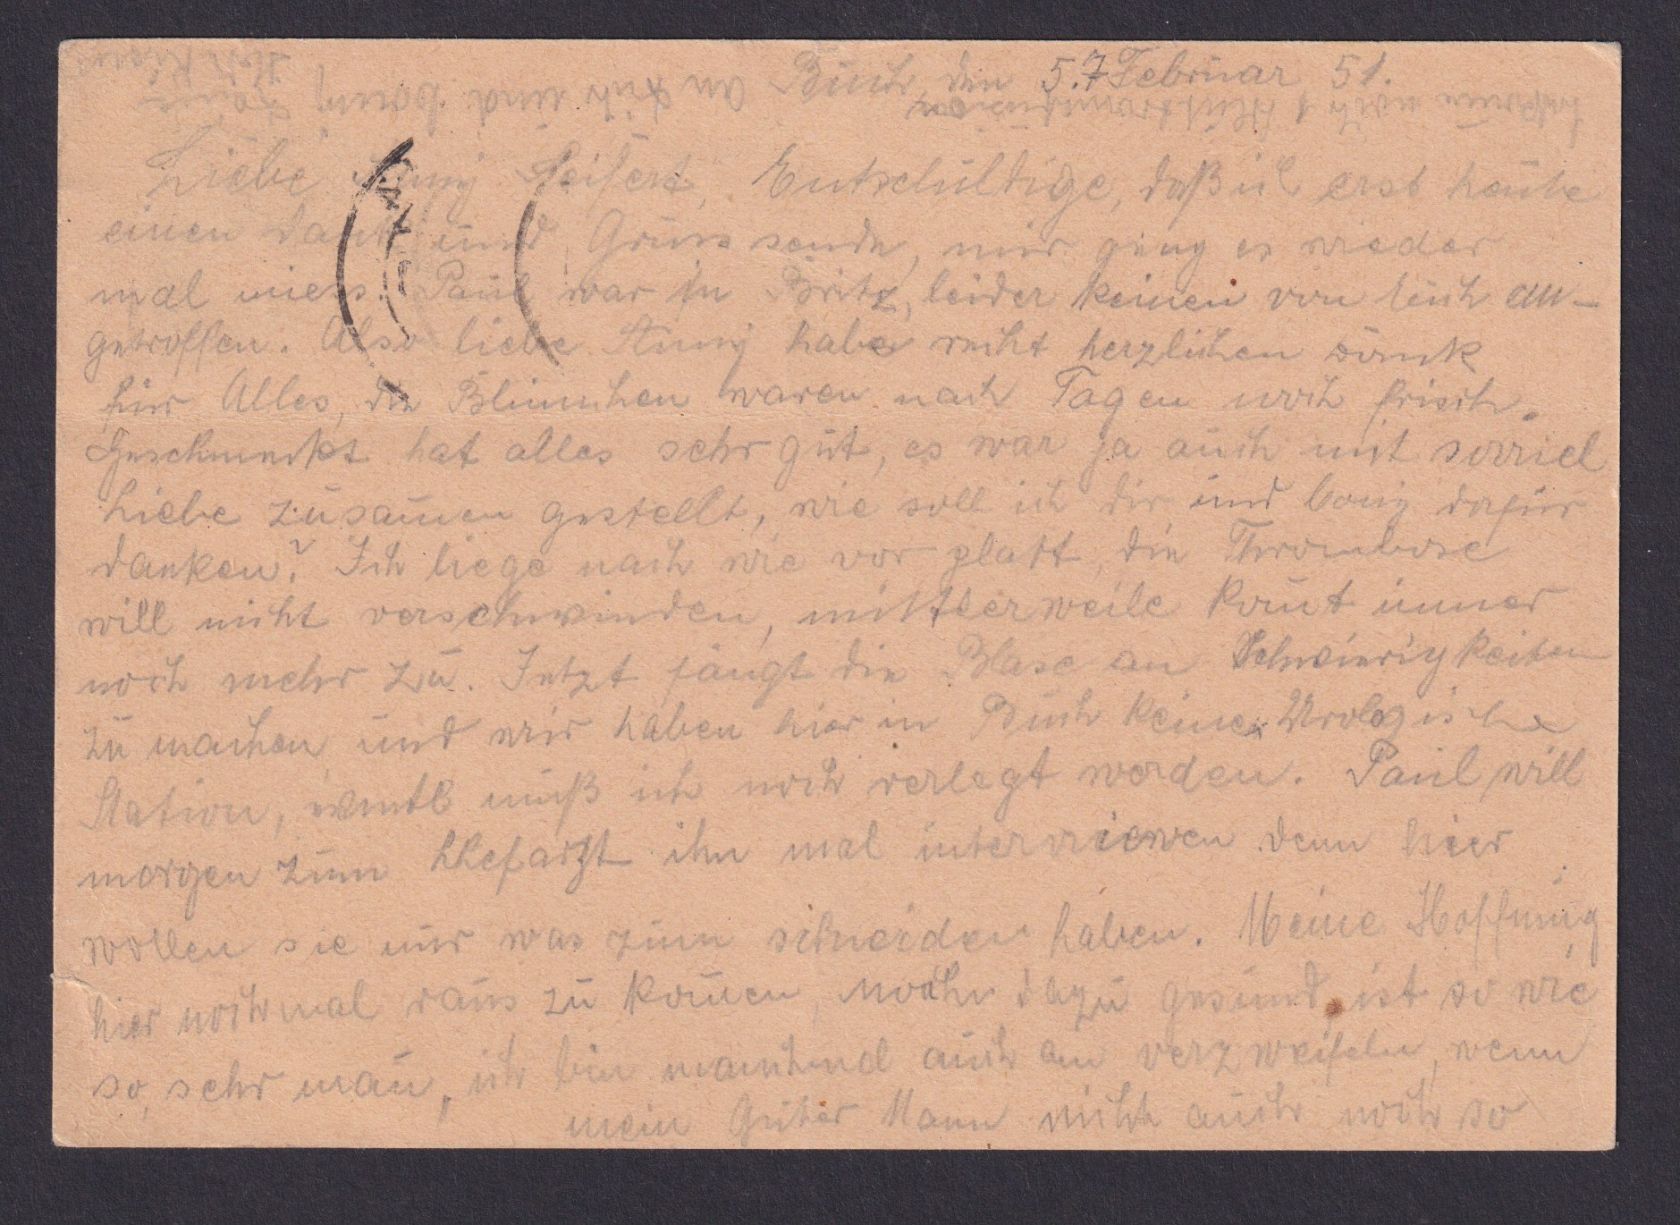 Buch, den 5.7 Februar 51.
Liebe Anny Seifert, Entschuldige, daß ich erst heute
einen Dank und Gruss sende, mir ging es wieder
mal mies. Paul war in Britz, leider keinen von Euch an-
getroffen. Also liebe Anny habe recht herzlichen Dank
für Alles, die Blümchen waren nach Tagen noch frisch.
Geschmeckt hat alles sehr gut, es war ja auch mit soviel
Liebe zusamen gestellt, wie soll ich dir und Conny dafür
danken? Ich liege nach wie vor platt, die Thrombose
will nicht verschwinden, mittlerweile komt immer
noch mehr zu. Jetzt fängt die Blase an Schwierigkeiten
zu machen und wir haben hier in Buch keine Urologische
Station, eventl muß ich noch verlegt werden. Paul will
morgen zum Chefarzt ihn mal interviewen denn hier
wollen sie nur was zum schneiden haben. Meine Hoffnung
hier nochmal raus zu komen, noch dazu gesund, ist so wie
so, sehr mau, ich bin manchmal auch am verzweifeln, wenn
mein Guter Mann nicht auch noch so
an dich und